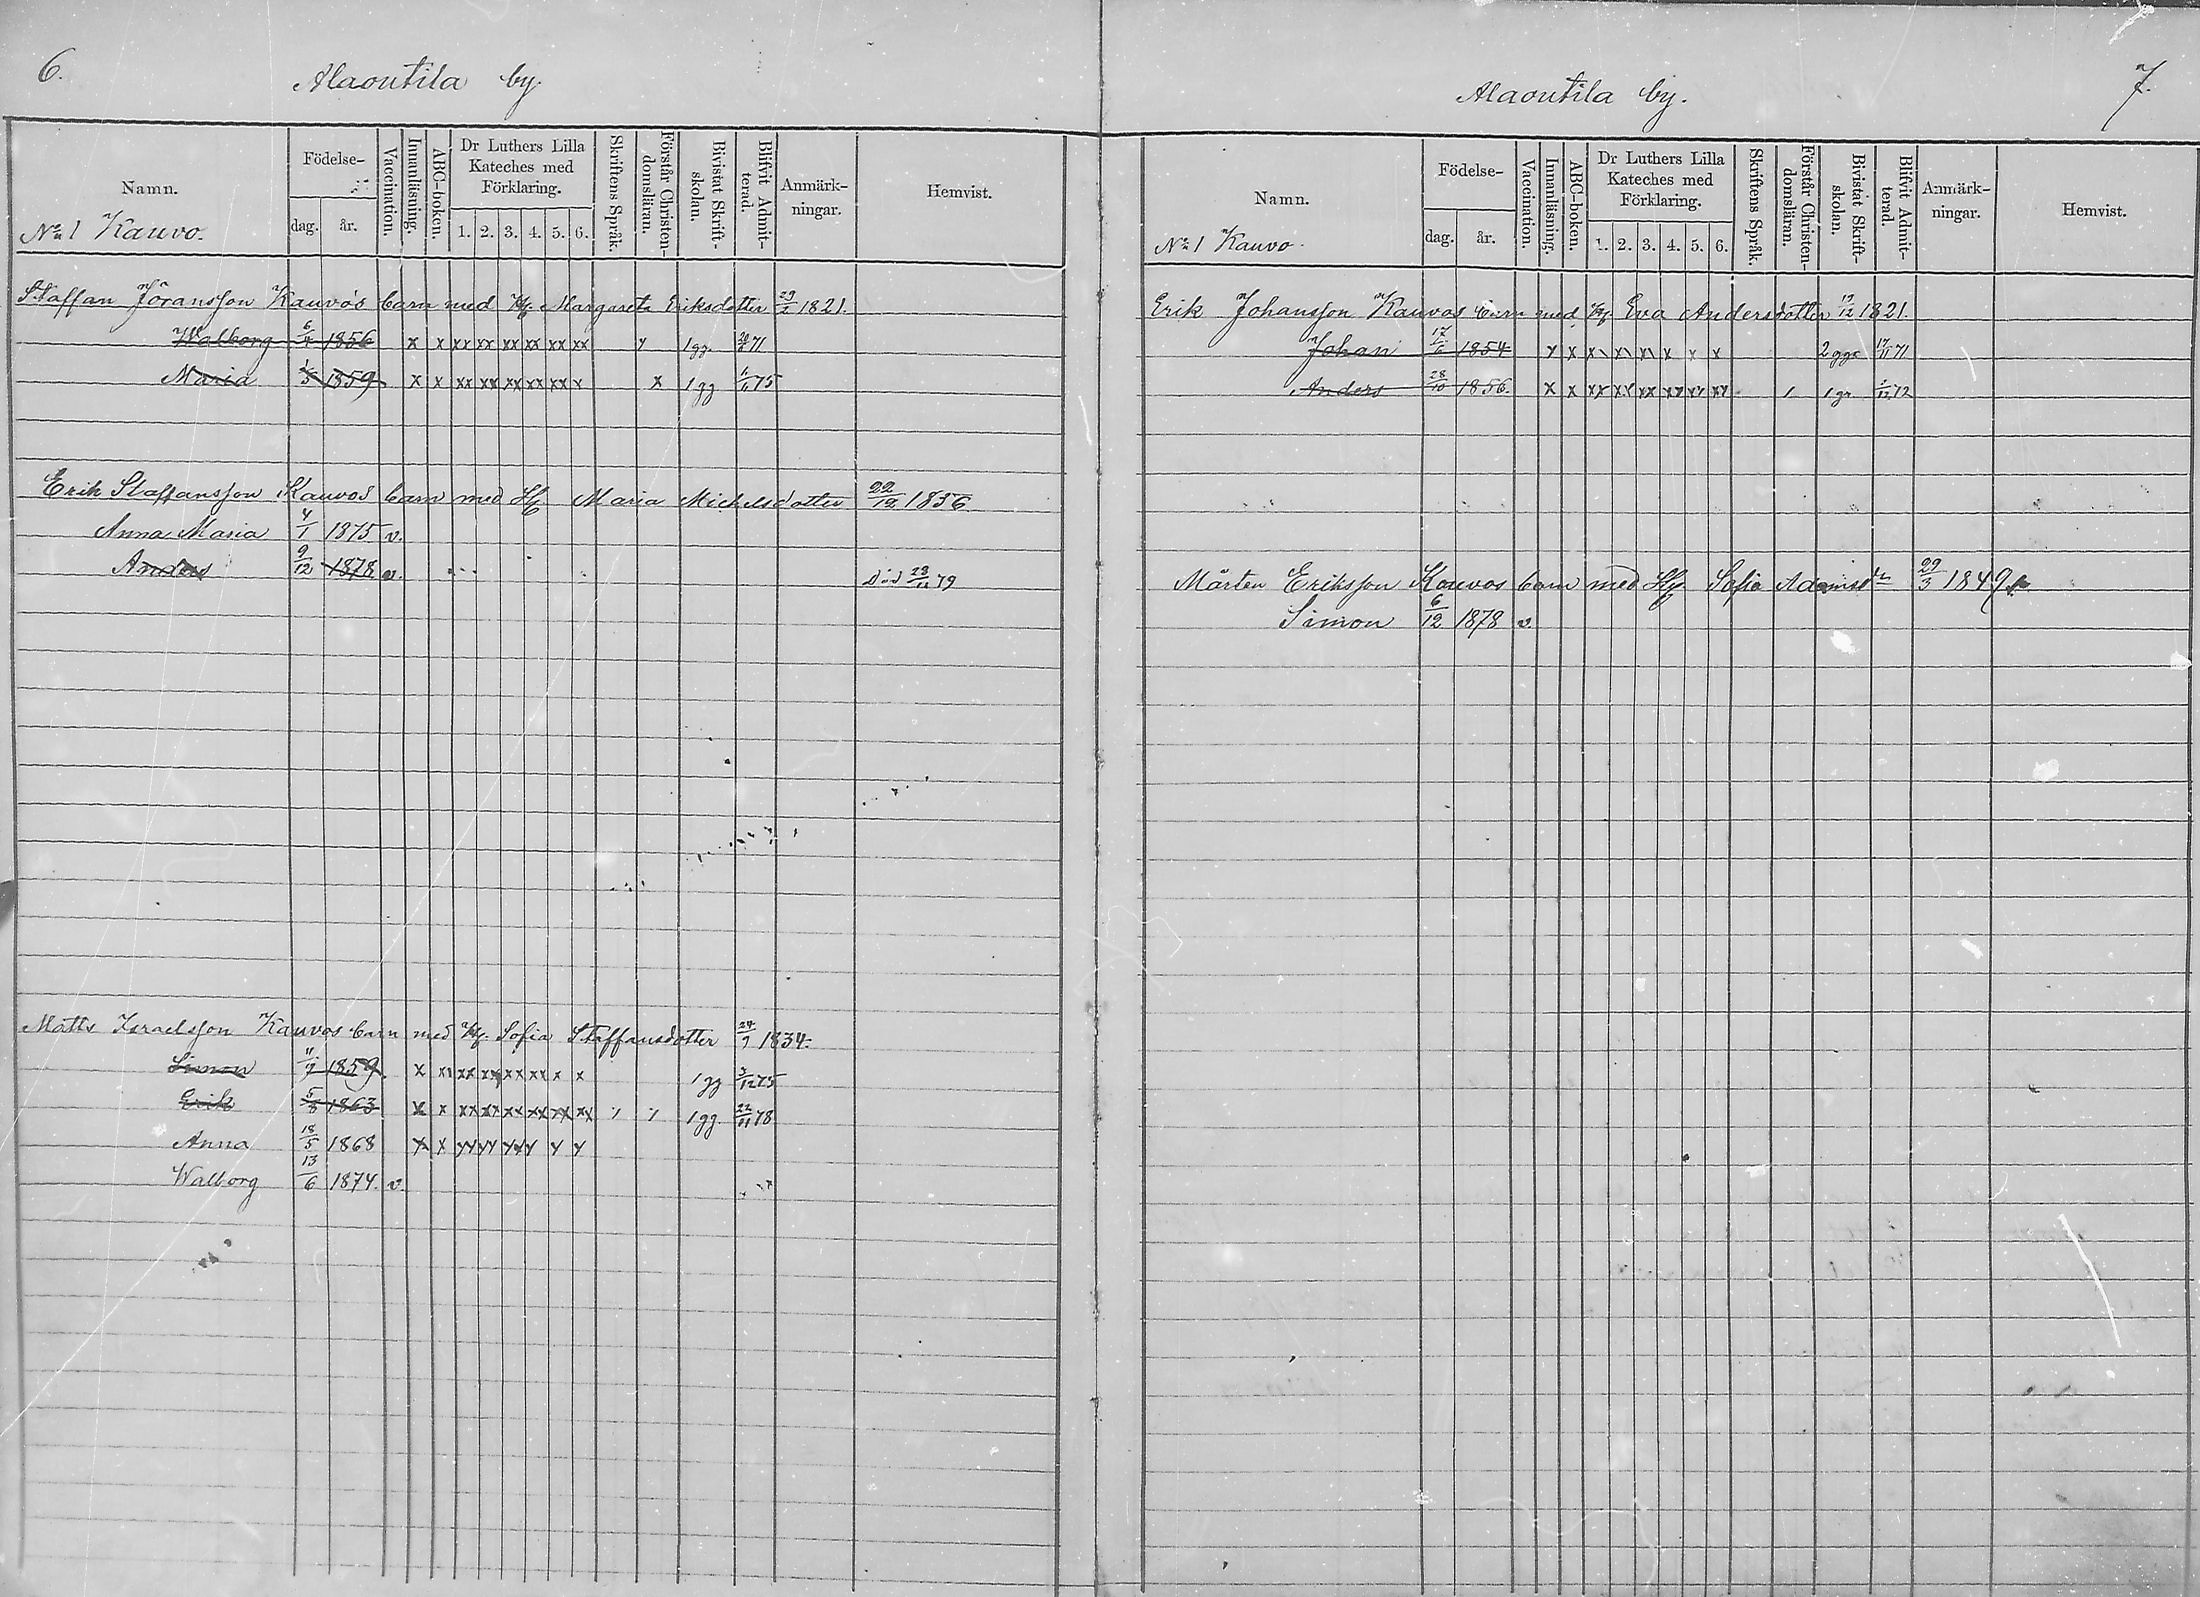 6.
Alaoutila by.
Namn.
Födelse-
dag. år.
Vaccination.
Innanläsning.
ABC-boken.
Dr Luthers Lilla Kateches med Förklaring.
1. 2. 3. 4. 5. 6.
Skriftens Språk.
Förstår Christen-domsläran.
Bivistat Skrift-skolan.
Blifvit Admit-terad.
Anmärk-ningar.
Hemvist.
No 1 Kauvo.
Staffan Jöransson Kauvos barn med H. Margareta Eriksdotter 1821.
Walborg 6/4 1856 x x xx xx xx xx xx xx 1 gg 71
Maria 1859 x x xx xx xx xx xx x x 1 gg 11/11 75
Erik Staffansson Kauvos barn med H. Maria Michelsdotter 22/12 1856
Anna Maria 4/1 1875 v.
Anders 9/12 1878 v. Död 79
Matts Israelsson Kauvos barn med H. Sofia Staffansdotter 1834.
Simon 1859 x x xx xx xx xx x x 1 gg 3/12 75
Erik 5/8 1863 x x xx xx xx xx xx xx 1 gg 22/11 78
Anna 18/5 1868 x x
Walborg 13/6 1874. v.
7.
Alaoutila by.
Namn.
Födelse-
dag. år.
Vaccination.
Innanläsning.
ABC-boken.
Dr Luthers Lilla Kateches med Förklaring.
1. 2. 3. 4. 5. 6.
Skriftens Språk.
Förstår Christen-domsläran.
Bivistat Skrift-skolan.
Blifvit Admit-terad.
Anmärk-ningar.
Hemvist.
No 1 Kauvo.
Erik Johansson Kauvos barn med H. Eva Andersdotter 1821.
Johan 17/6 1854 2 ggr 17/11 71
Anders 28/10 1856. x x xx xx xx xx xx xx 72
Mårten Eriksson Kauvos barn med H. Sofia 29/3 1849
Simon 6/12 1878 v.